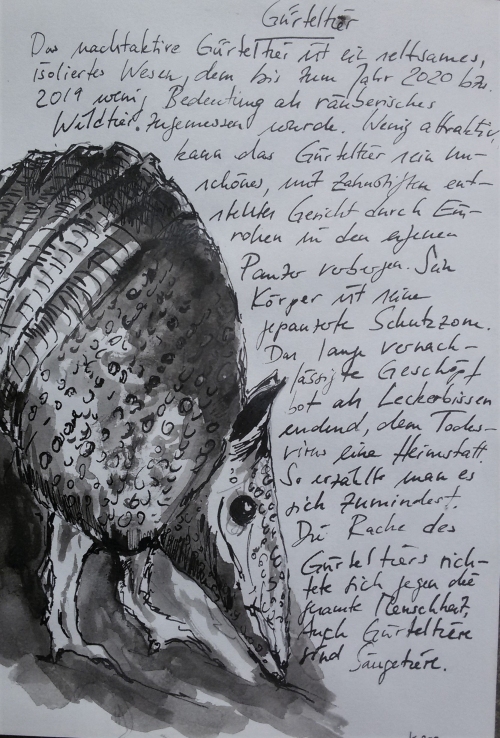 Gürteltier
Das nachtaktive Gürteltier ist ein seltsames,
isoliertes Wesen, dem bis zum Jahr 2020 bzw.
2019 wenig Bedeutung als räuberisches
Wildtier zugemessen wurde. Wenig attraktiv,
kann das Gürteltier sein un-
schönes, mit Zahnstiften ent-
stelltes Gesicht durch Ein-
rollen in den eigenen
Panzer verbergen. Sein
Körper ist seine
gepanzerte Schutzzone.
Das lange vernach-
lässigte Geschöpf
bot als Leckerbissen
endend, dem Todes-
virus eine Heimstatt.
So erzählte man es
sich zumindest.
Die Rache des
Gürteltiers rich-
tete sich gegen die
gesamte Menschheit.
Auch Gürteltiere
sind Säugetiere.